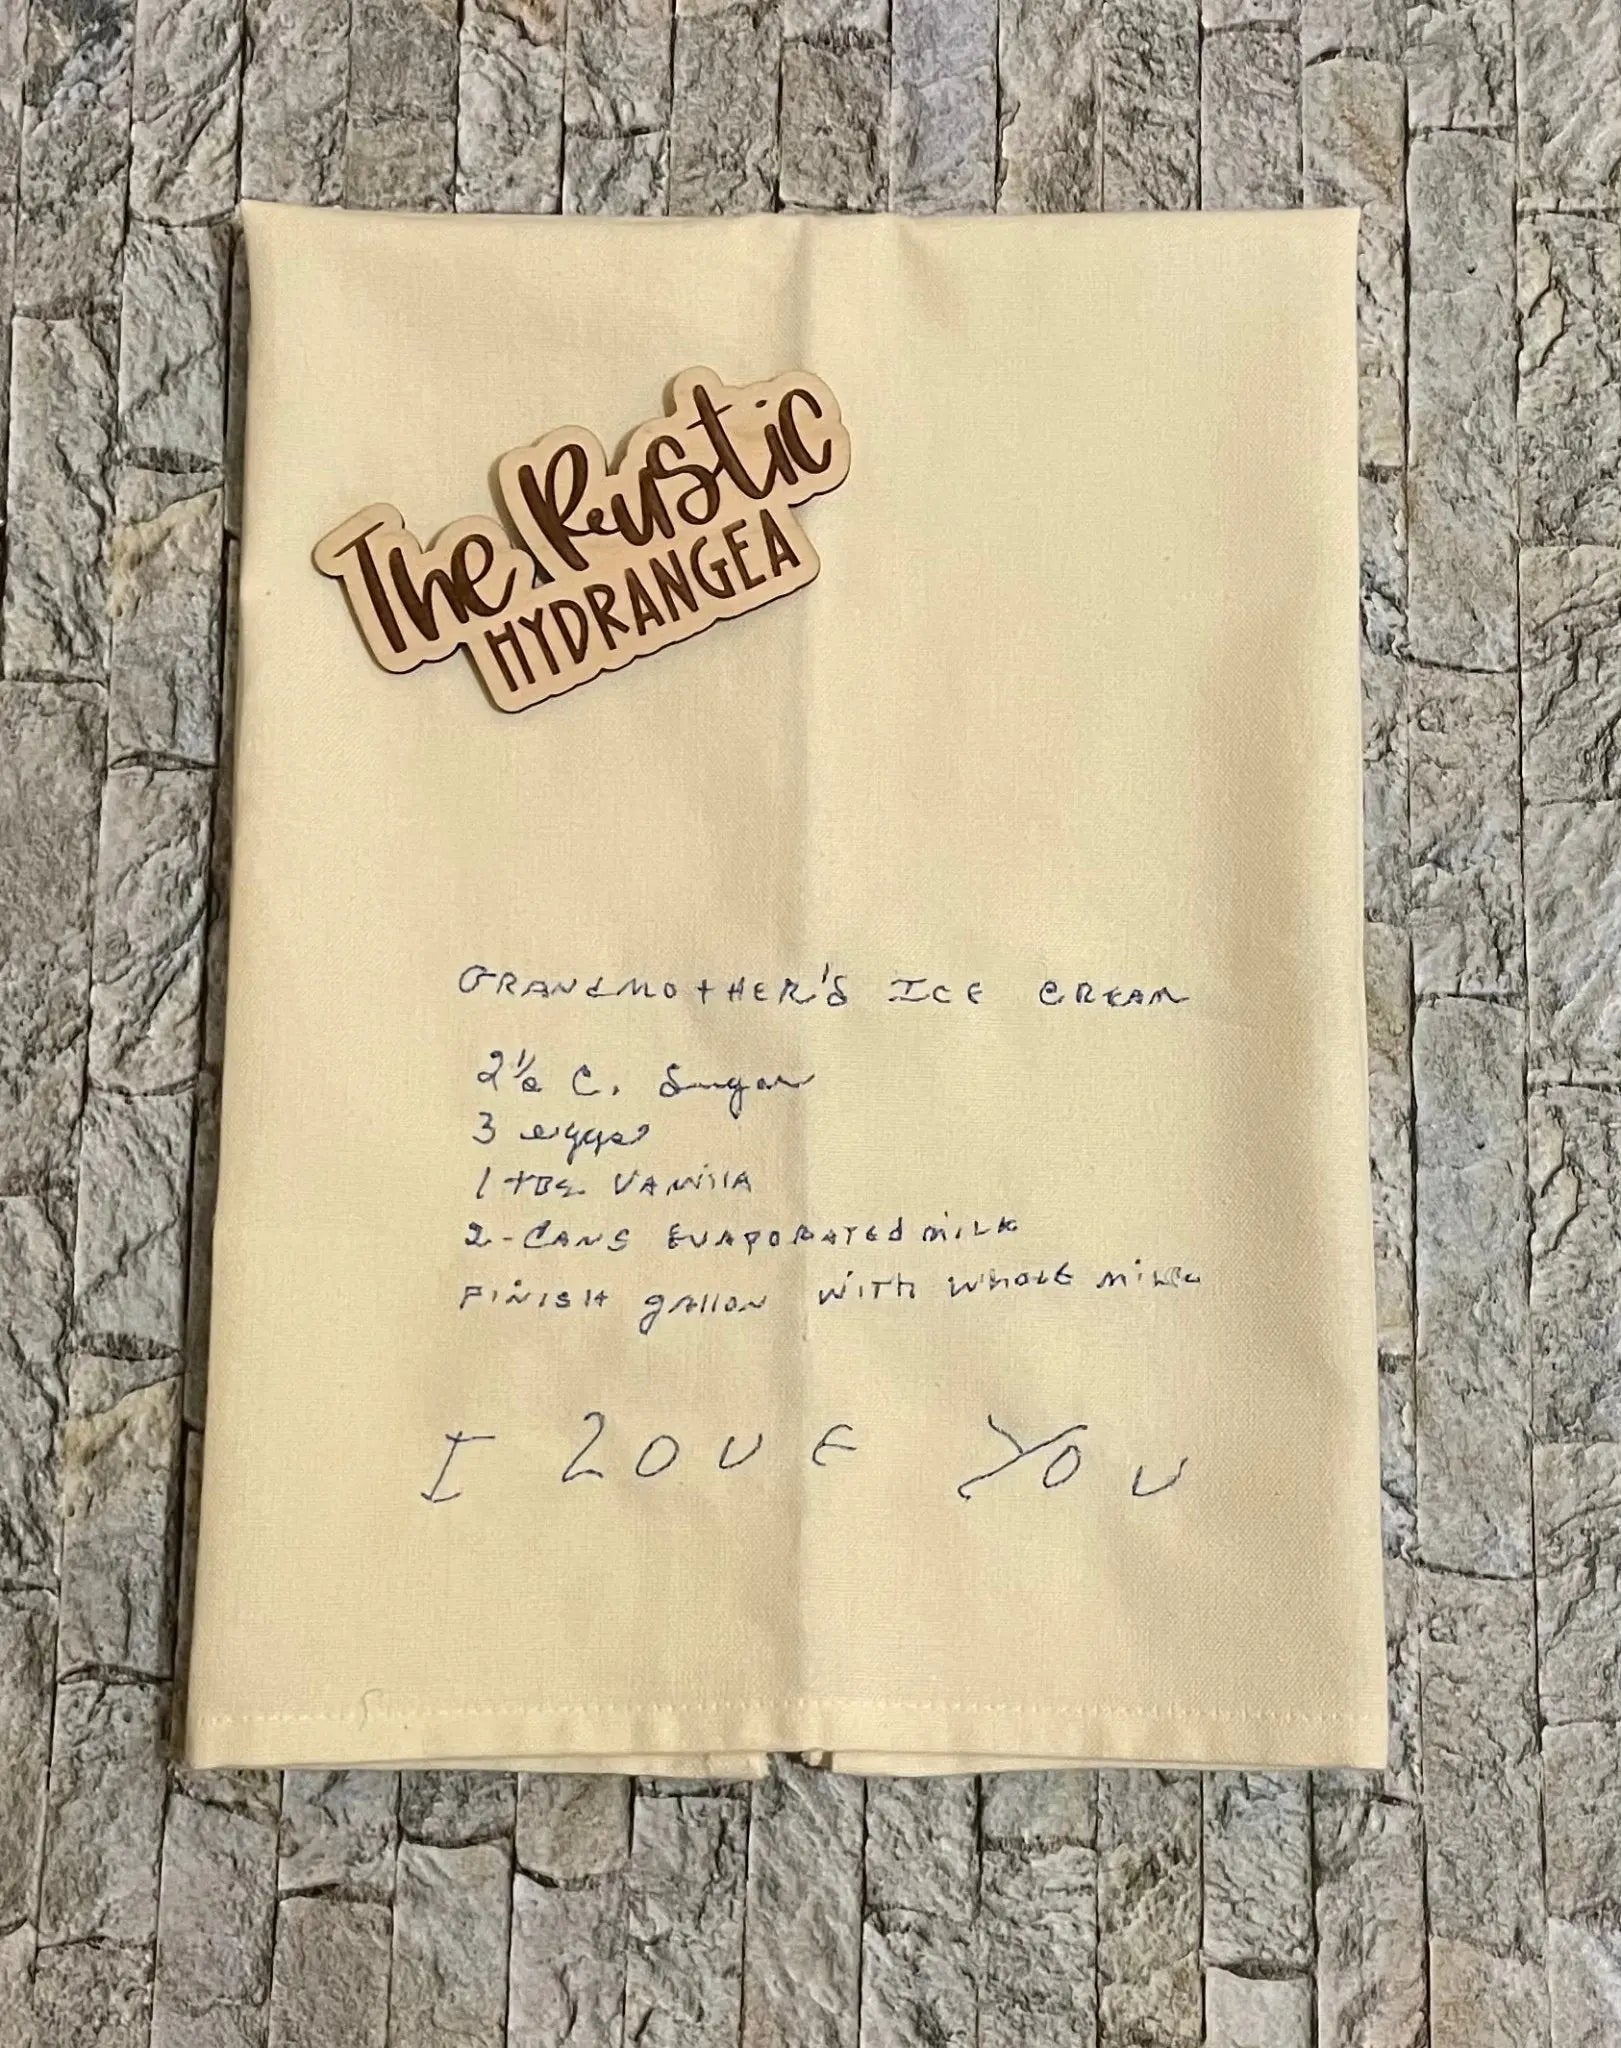 The Rustic
HYDRANGEA
GRANdMOtHER'S ICE CREAM
2 1/2 C. Sugar
3 eggs
1 tBS VANillA
2-CANS EVAPORATEd MiLK
FINISH gAllON WITH WHOLE MiLK
I LOVE YOU